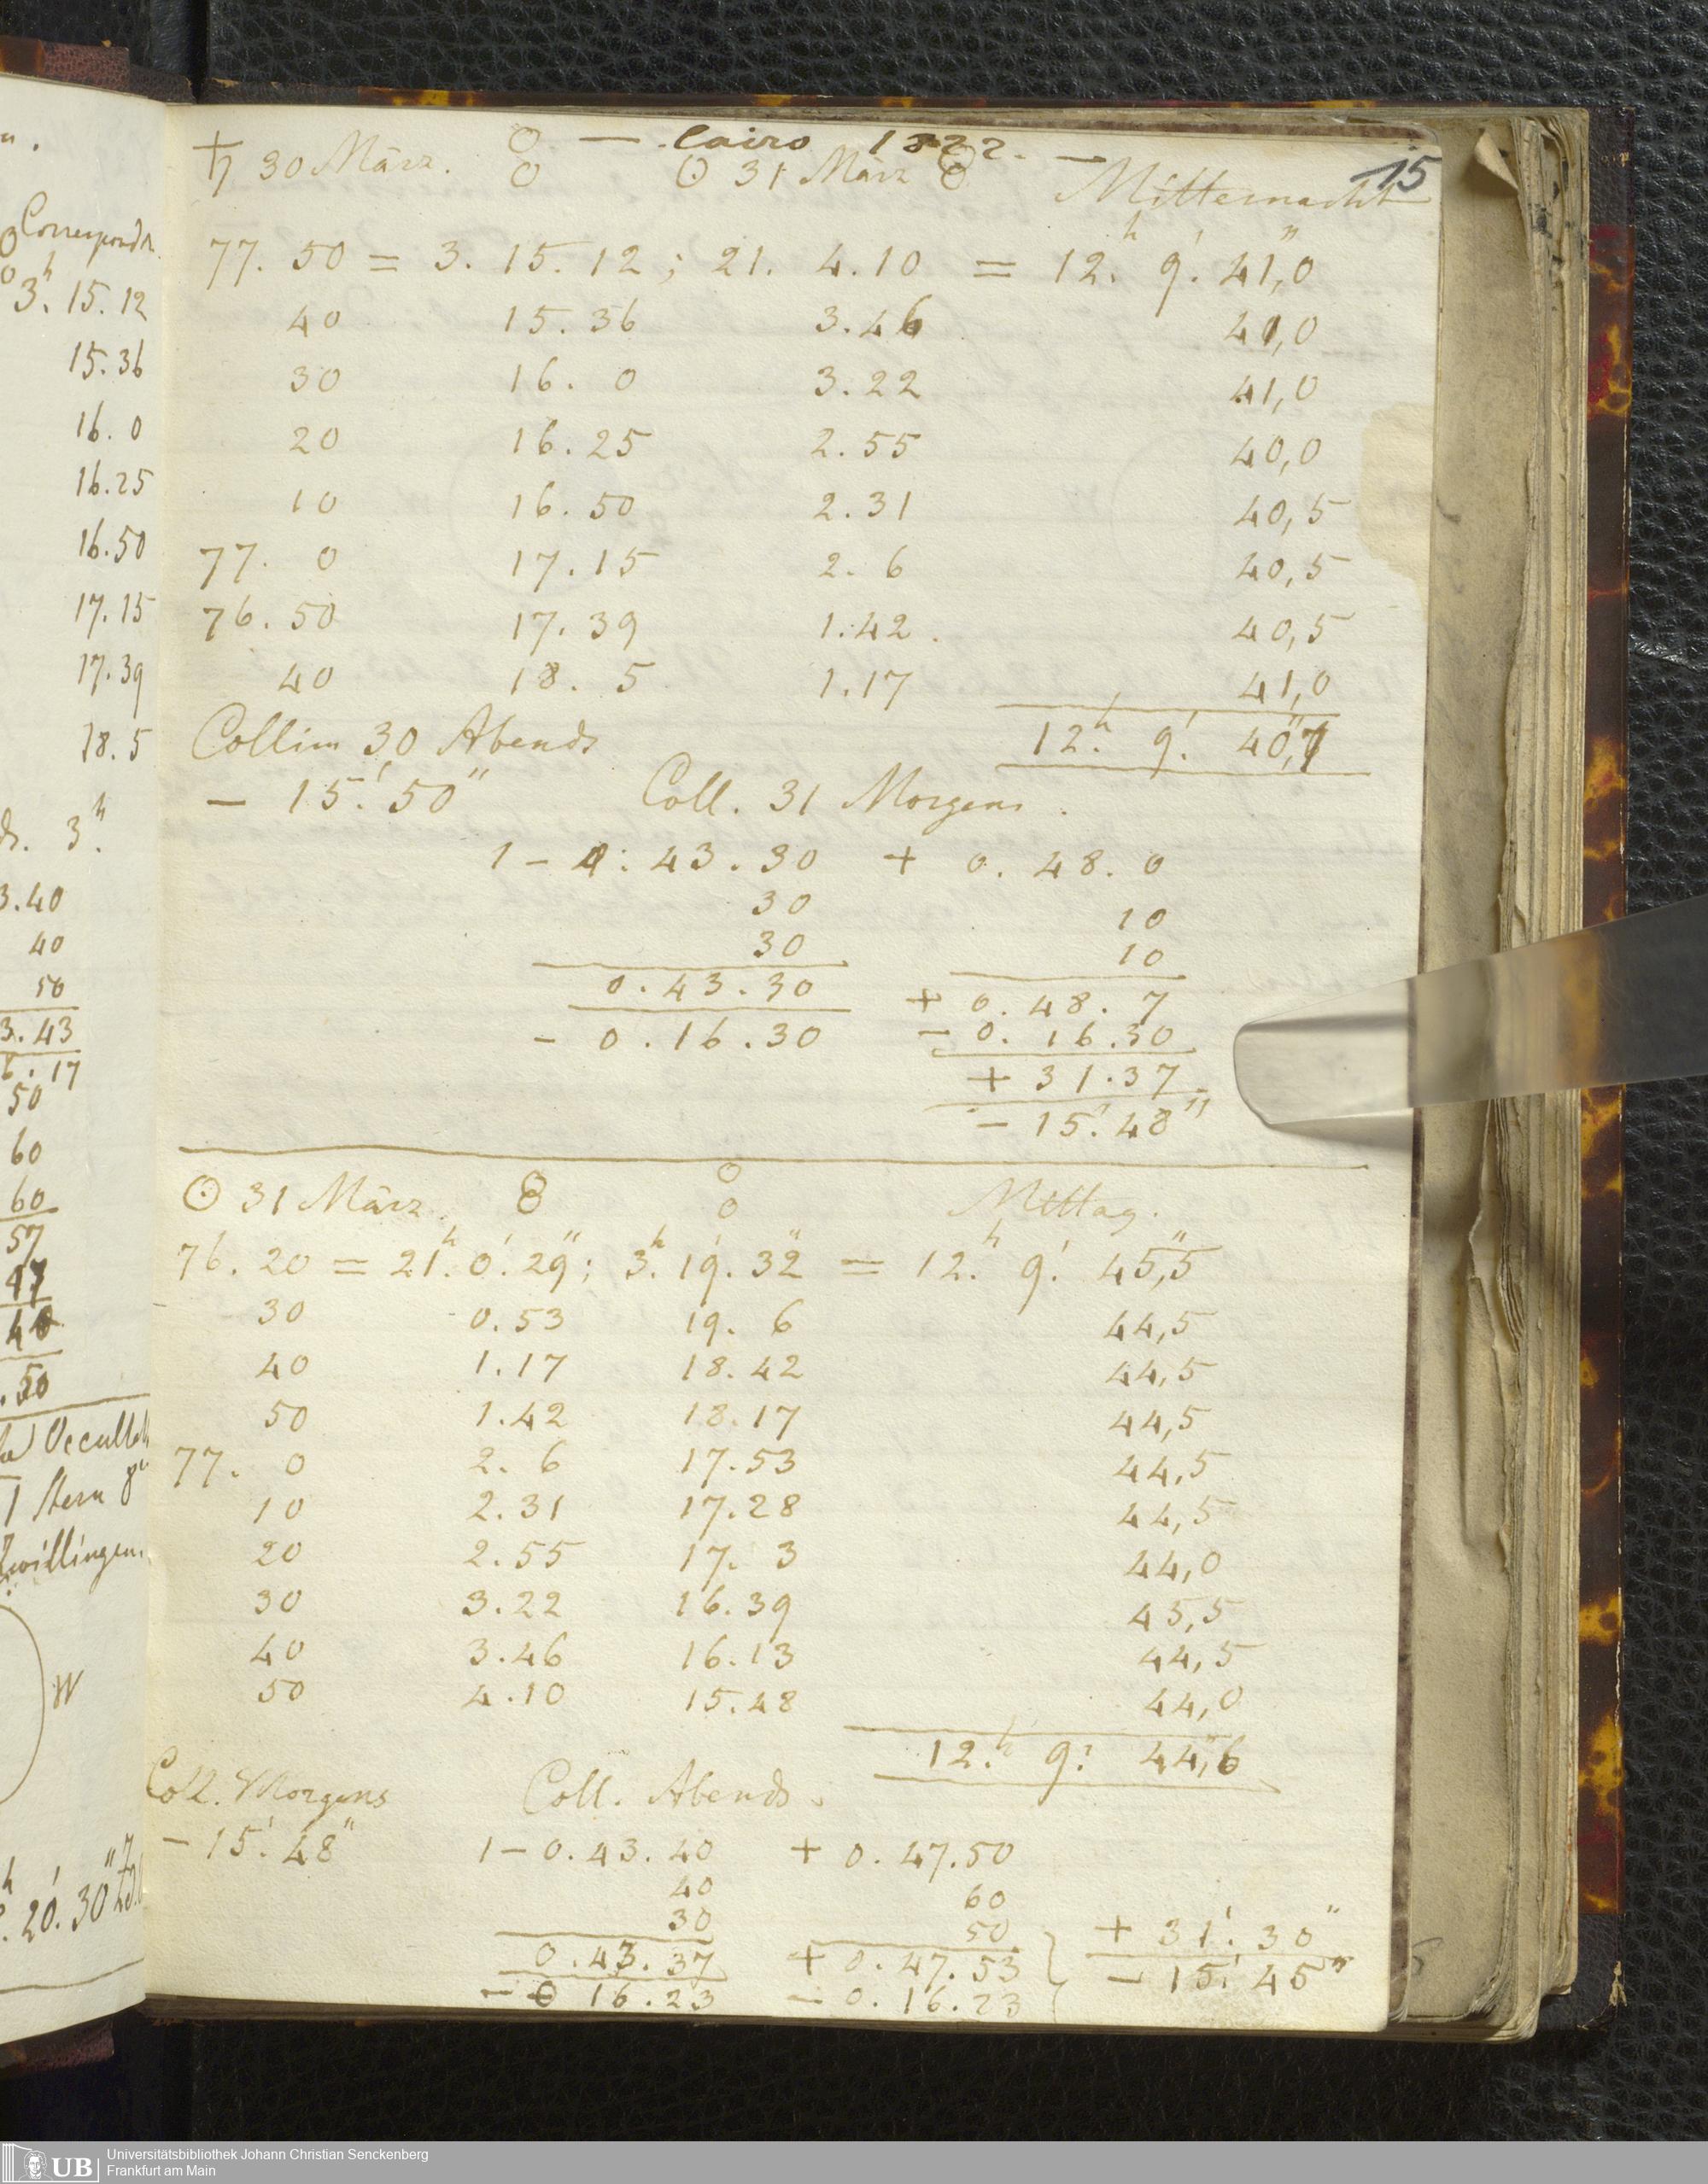 — Cairo 1822. — 15
♄ 30 März. ☉ 31 März Mitternacht
77. 50 = 3. 15. 12 ; 21. 4. 10 = 12.h 9.' 41,"0
40 15. 36 3. 46 41,0
30 16. 0 3. 22 41,0
20 16. 25 2. 55 40,0
10 16. 50 2. 31 40,5
77. 0 17. 15 2. 6 40,5
76. 50 17. 39 1. 42. 40,5
40 18. 5 1. 17 41,0
Collim 30 Abends 12.h 9.' 40,"7
— 15.' 50" Coll. 31 Morgens.
1 – 0. 43. 30 + 0. 48. 0
30 10
30 10
0. 43. 30 + 0. 48. 7
– 0. 16. 30 – 0. 16. 30
+ 31. 37
– 15.' 48"
☉ 31 März. Mittag.
76. 20 = 21.h 0.' 29"; 3.h 19.' 32" = 12.h 9.' 45,"5
30 0. 53 19. 6 44,5
40 1. 17 18. 42 44,5
50 1. 42 18. 17 44,5
77. 0 2. 6 17. 53 44,5
10 2. 31 17. 28 44,5
20 2. 55 17. 3 44,0
30 3. 22 16. 39 45,5
40 3. 46 16. 13 44,5
50 4. 10 15. 48 44,0
12.h 9.' 44,"6
Coll. Morgens Coll. Abends.
– 15.' 48" 1 – 0. 43. 40 + 0. 47. 50
40 60
30 50 + 31.' 30"
0. 43. 37 + 0. 47. 53 – 15.' 45"
– 0 16. 23 – 0. 16. 23
Correspond
3.h 15. 12
15. 36
16. 0
16. 25
16. 50
17. 15
17. 39
18. 5
3.h
3. 40
40
50
3. 43
6. 17
50
60
60
57
47
. 50
Occult
1 Stern 8
Zwillingen.
W
20.' 30"
UB Universitätsbibliothek Johann Christian Senckenberg
Frankfurt am Main